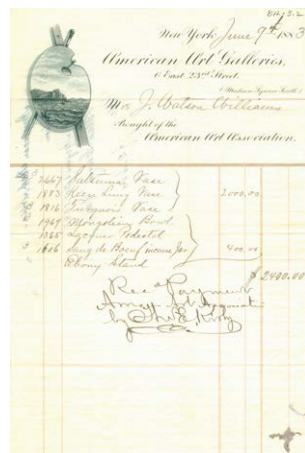 BH 5.2
New York, June 9th 1883
American Art Galleries,
6 East 23rd Street.
(Madison Square South)
Mrs J. Watson Williams
Bought of the
American Art Association.
2467 Satsuma Vase
1883 Vase 2,000.00
1816 Vase
1969 Mongolian Bowl
1268 Lacquer Pedestal
1606 Sang de Boeuf Jar 400.00
Ebony Stand
$ 2400.00
Rec'd Payment
Amer Art Association
by